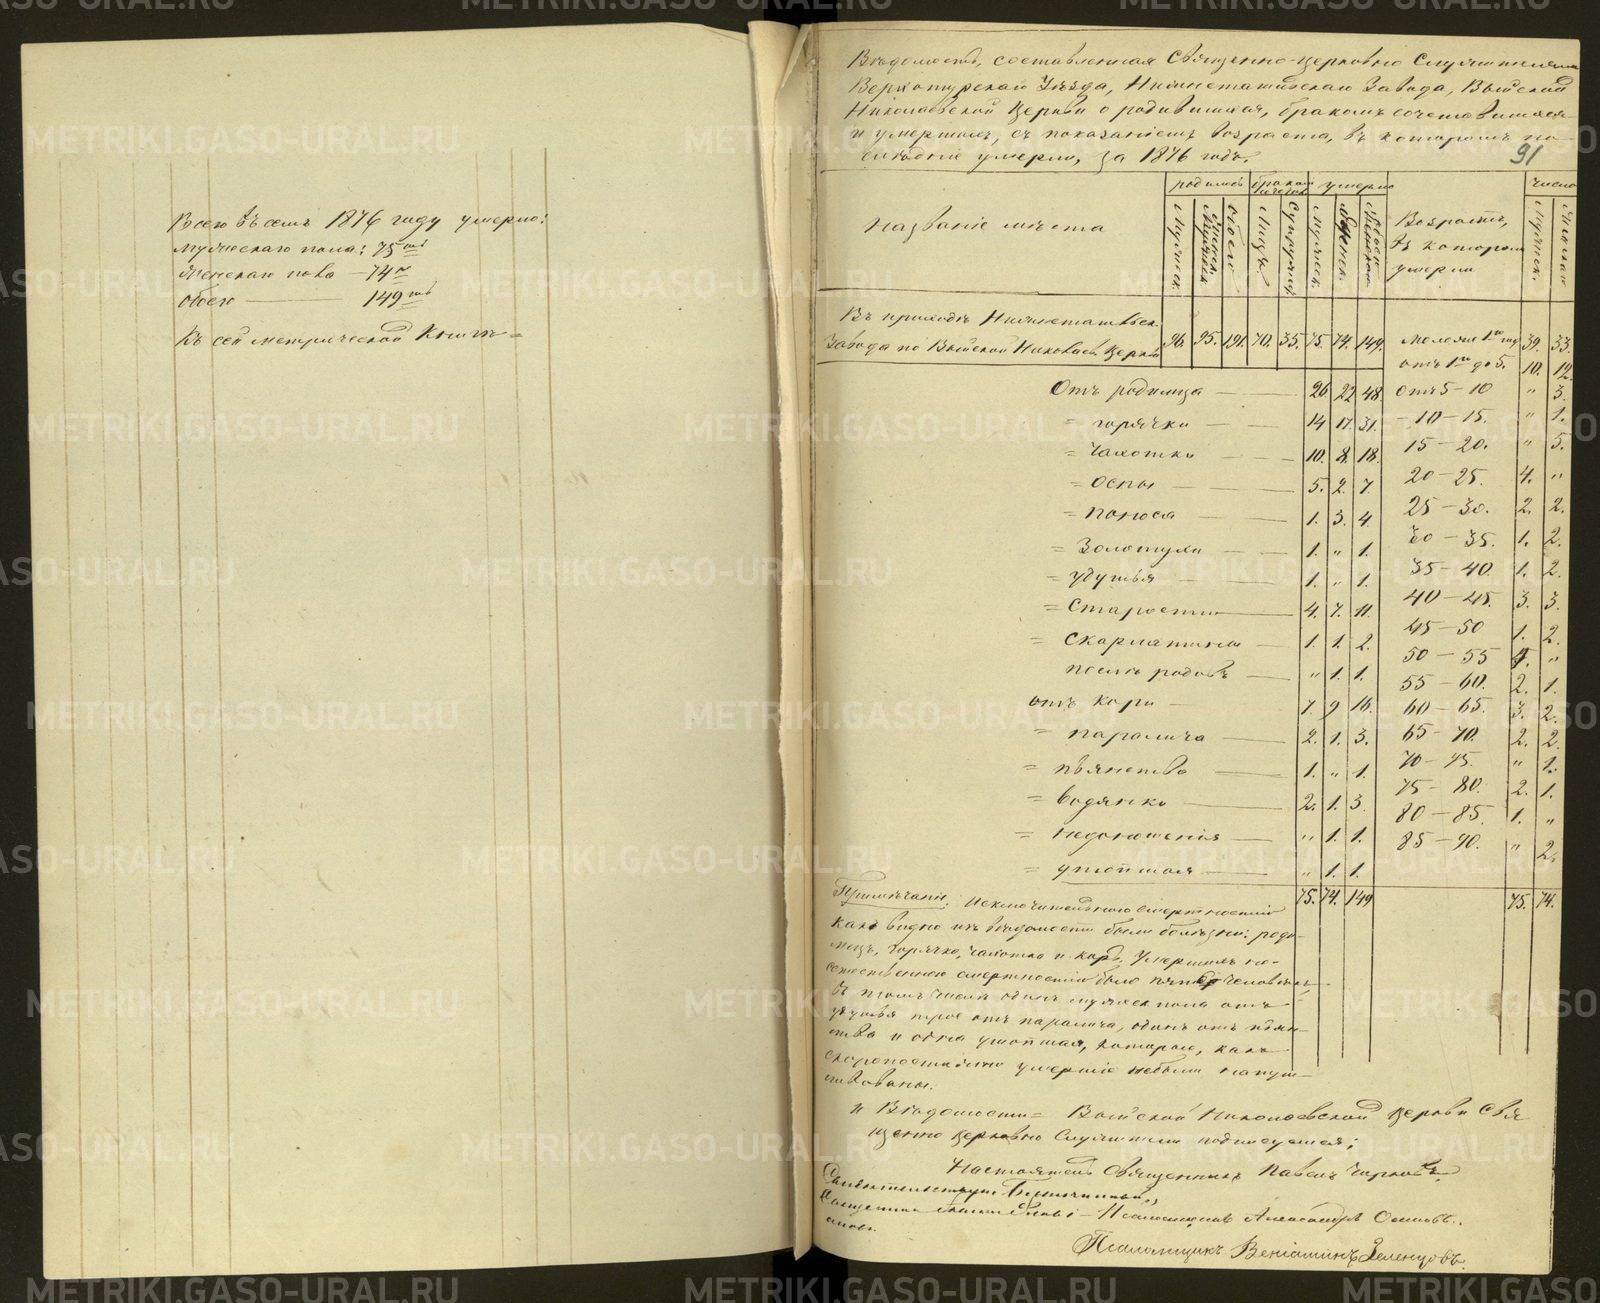 Всего въ семъ 1876 году умерло:
мужескаго пола: 75ть
женскаго пола — 74
обоего — 149ть
Къ сей метрической Книгѣ =
Вѣдомость, составленная Священно-церковно Служителями
Верхотурскаго Уѣзда, Нижнетагильскаго Завода, Выйской
Николаевской Церкви о родившихся, бракомъ сочетавшихся
и умершихъ, съ показаніемъ возраста, въ которомъ по-
слѣдніе умерли, за 1876 годъ.
91
Названіе мѣста
родилось
умерло
Возрастъ,
въ которомъ
умерли
число
Въ приходѣ Нижнетагильск.
Завода по Выйской Николаев. Церкви
96. 95. 191. 70. 35. 75. 74. 149.
моложе 1го год 39. 33.
отъ 1го до 5. 10. 12.
Отъ родимца — 26 22 48. отъ 5-10 " 3.
= горячки — 14 17 31. 10-15. " 1.
= чахотки — 10. 8. 18. 15-20. " 5.
= оспы — 5. 2. 7. 20-25. 4. "
= поноса — 1. 3. 4. 25-30. 2. 2.
= золотухи — 1. " 1. 30-35. 1. 2.
= удушья — 1. " 1. 35-40. 1. 2.
= старости — 4. 7. 11. 40-45. 3. 3.
= скарлатины — 1. 1. 2. 45-50 1. 2.
послѣ родовъ — " 1. 1. 50-55 4. "
отъ кори — 7. 9 16. 55-60. 2. 1.
60-65. 3. 2.
= паралича — 2. 1. 3. 65-70. 2. 2.
= пьянства — 1. " 1. 70-75. " 1.
= водянки — 2. 1. 3. 75-80. 2. 1.
80-85. 1. "
= недоношенія — " 1. 1. 85-90. " 2.
= утопшая — " 1. 1.
75. 74. 149 75. 74.
Примѣчаніе: Исключительною смертностію
какъ видно изъ вѣдомости были болѣзни: роди-
мецъ, горячка, чахотка и корь. Умершихъ не-
естественною смертностію было человѣкъ,
въ томъ числѣ одинъ мужеск пола отъ
удушья трое отъ паралича, одинъ отъ пьян-
ства и одна утопшая, которые, какъ
скоропостижно умершіе небыли напут-
ствованы.
Къ Вѣдомости = Выйской Николаевской церкви Свя
щенно церковно Служители подписуемся;
Настоятель Священникъ Павелъ
Псаломщикъ Александръ
Псаломщикъ Веніаминъ Зеленцовъ.
METRIKI.GASO-URAL.RU